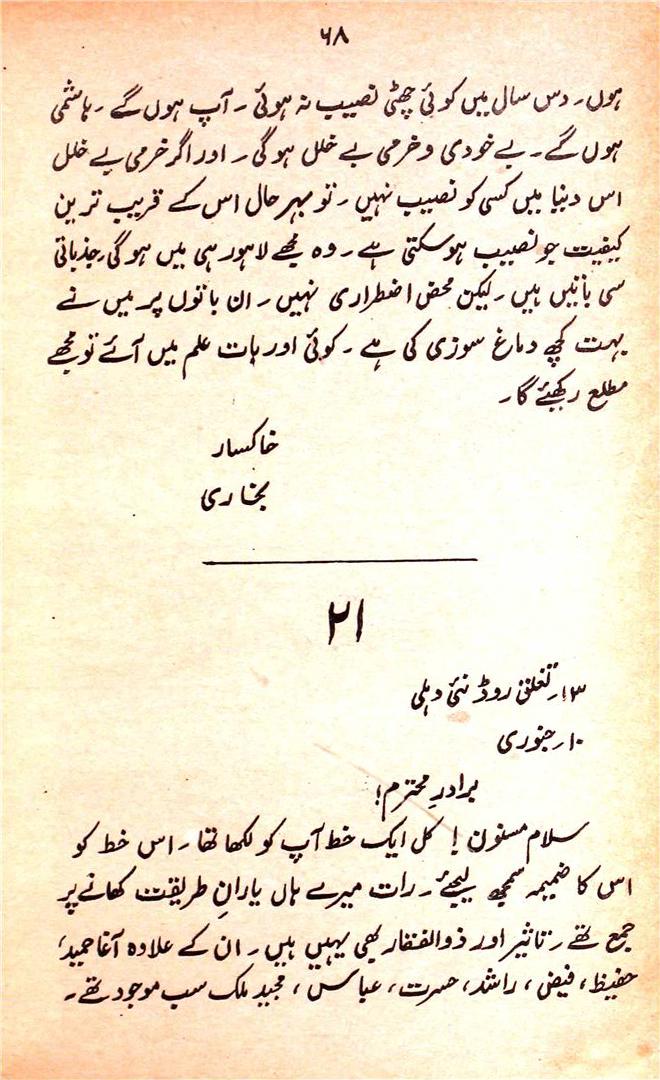 ۶۸
ہوں۔ دس سال میں کوئی چھٹی نصیب نہ ہوئی۔ آپ ہوں گے۔ ہاشمی
ہوں گے۔ بے خودی و خرمی بے خلل ہو گی۔ اور اگر خرمی بے خلل
اس دنیا میں کسی کو نصیب نہیں۔ تو بہر حال اس کے قریب ترین
کیفیت جو نصیب ہو سکتی ہے۔ وہ مجھے لاہور ہی میں ہو گی۔ جذباتی
سی باتیں ہیں۔ لیکن محض اضطراری نہیں۔ ان باتوں پر میں نے
بہت کچھ دماغ سوزی کی ہے۔ کوئی اور بات علم میں آئے تو مجھے
مطلع رکھیئے گا۔
خاکسار
بخاری
۲۱
۱۳۔ تغلق روڈ نئی دہلی
۱۰۔ جنوری
برادرِ محترم!
سلام مسنون! کل ایک خط آپ کو لکھا تھا۔ اس خط کو
اس کا ضمیمہ سمجھ لیجئے۔ رات میرے ہاں یارانِ طریقت کھانے پر
جمع تھے۔ تاثیر اور ذوالفقار بھی یہیں ہیں۔ ان کے علاوہ آغا حمید،
حفیظ، فیض، راشد، حسرت، عباس، مجید ملک سب موجود تھے۔